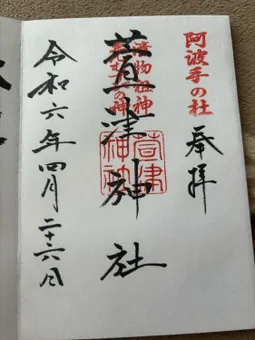 阿波手の杜
奉拝
漬物祖神
萱津神社
萱津
神社
令和六年四月二十六日